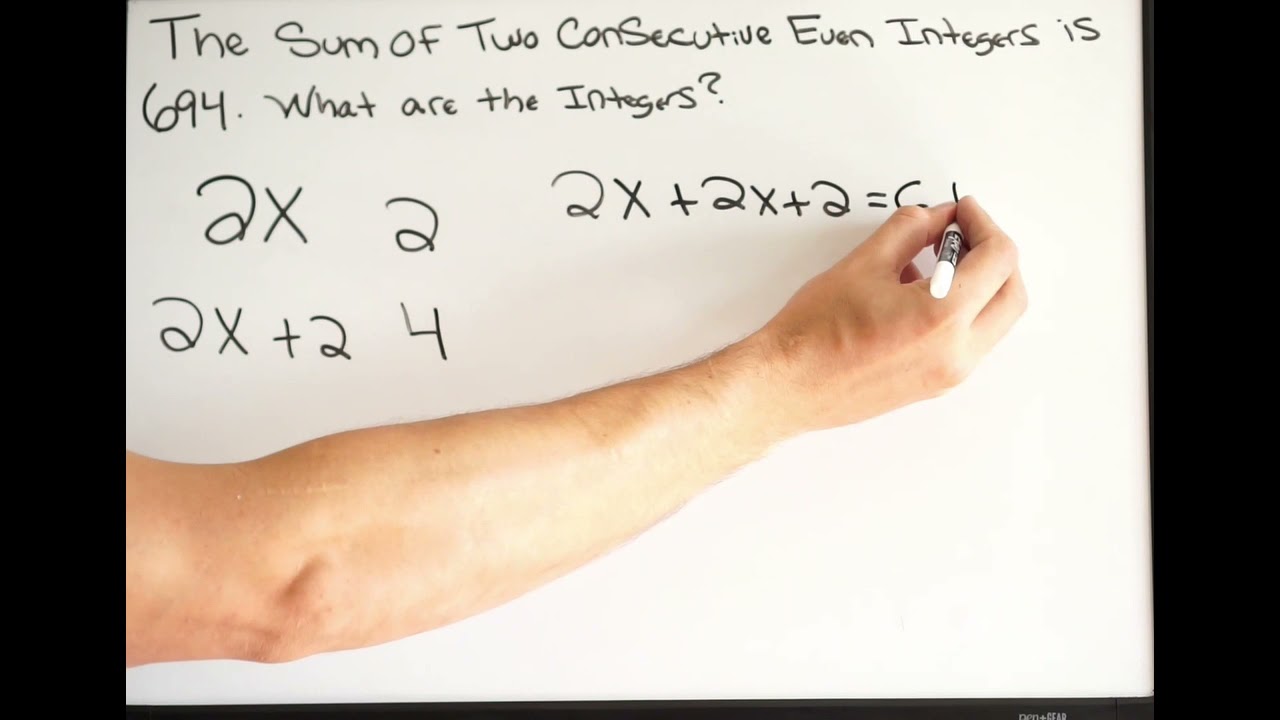 The Sum Of Two Consecutive Even Integers is
694. What are the Integers?
2x 2 2x + 2x + 2 =
2x + 2 4